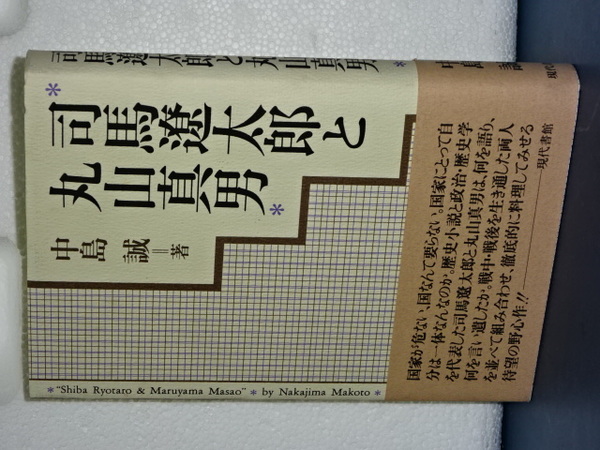 司馬遼太郎と丸山真男
司馬遼太郎と
丸山真男
中島 誠=著
"Shiba Ryotaro & Maruyama Masao" * by Nakajima Makoto
国家が危ない、国なんて要らない。国家にとって自
分は一体なんなのか。歴史小説と政治・歴史学
を代表した司馬遼太郎と丸山真男は、何を語り、
何を言い遺したか。戦中・戦後を生き通した両人
を並べて組み合わせ、徹底的に料理してみせる
待望の野心作!!
現代書館
中島 誠